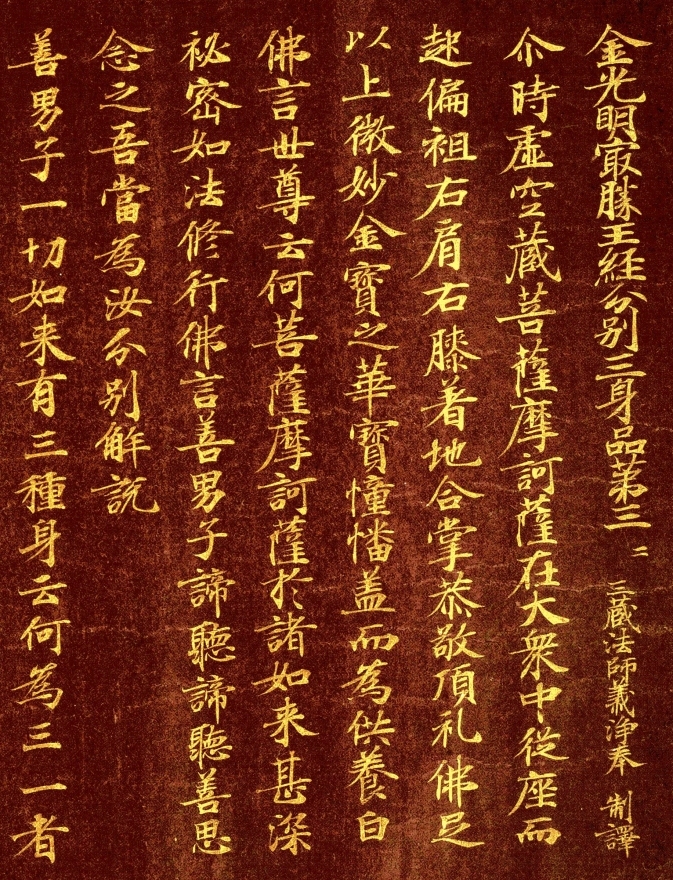 金光明冣勝王経分别三身品第三 二 三蔵法師義浄奉 制譯
尒時虚空蔵菩薩摩訶薩在大衆中従座而
起偏袒右肩右膝著地合掌恭敬頂礼佛足
以上微妙金寶之華寶幢幡盖而為供養白
佛言世尊云何菩薩摩訶薩於諸如来甚深
祕密如法修行佛言善男子諦聽諦聽善思
念之吾當為汝分别解説
善男子一切如来有三種身云何為三一者